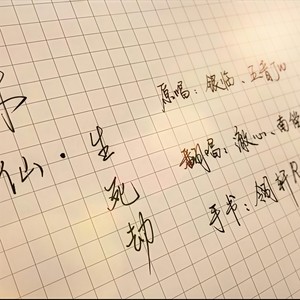 仙·生死劫
原唱：银临、五音Jw
翻唱：澈心、南
手书：翎轩